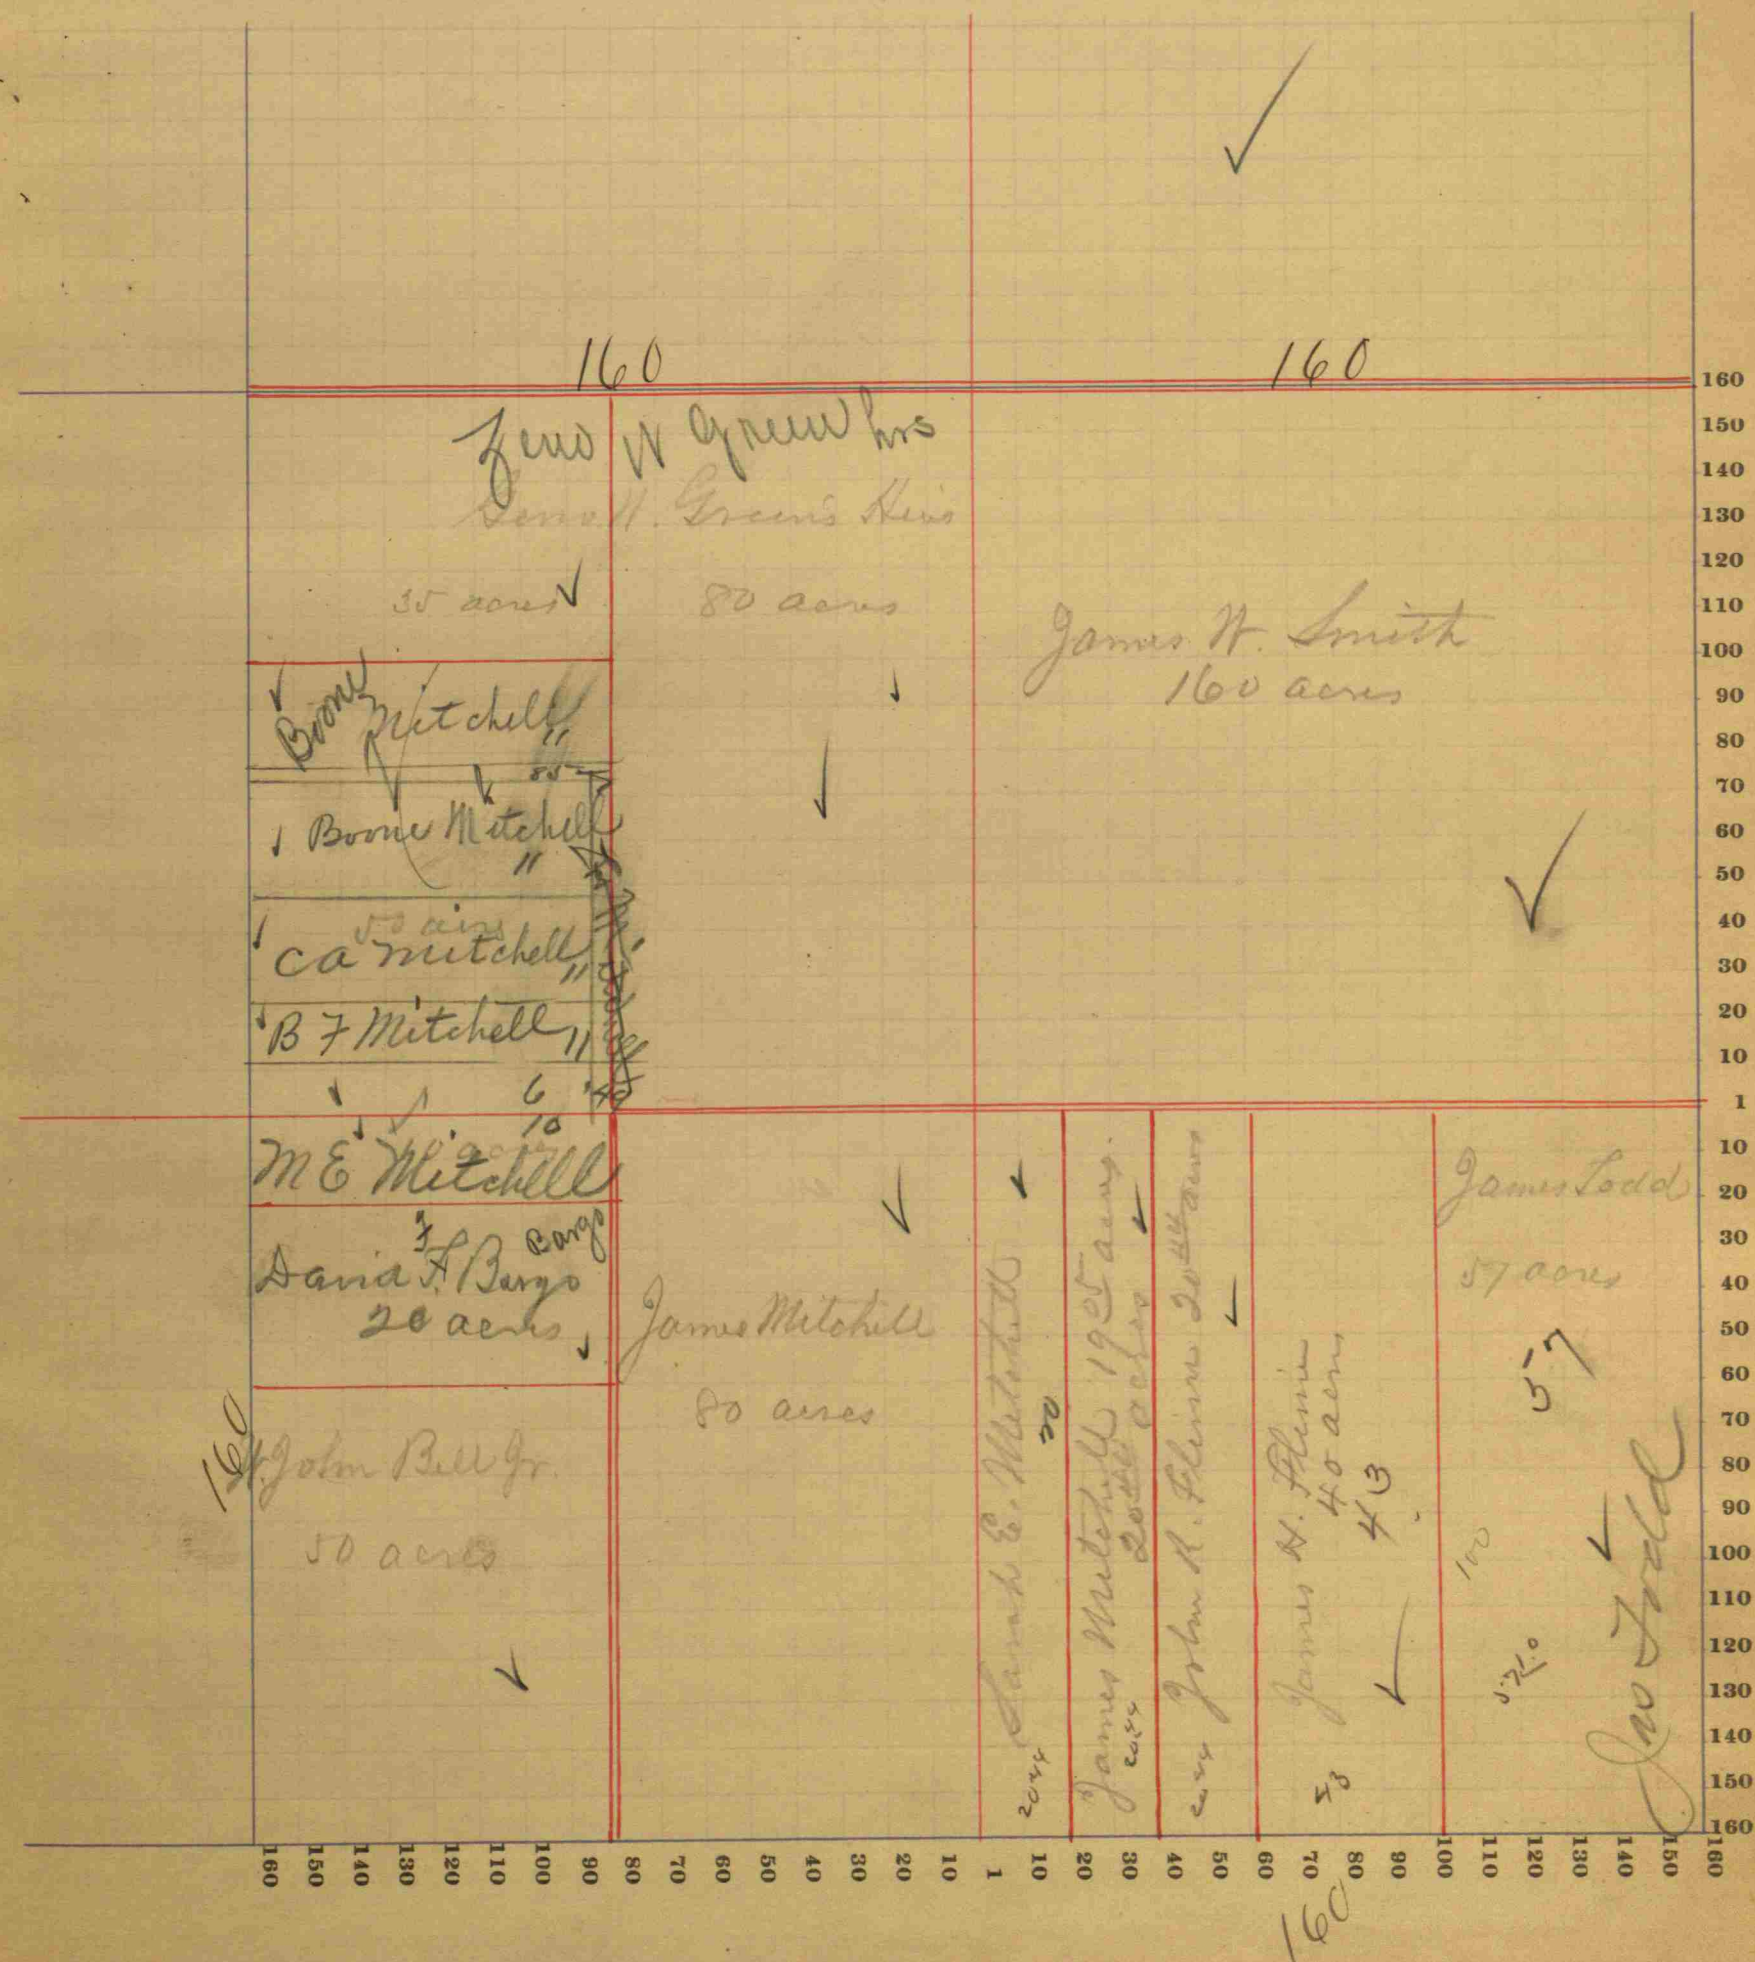 160
160
Zeno W Green hrs
Zeno W. Green's Heirs
35 acres
80 acres
James W. Smith
160 acres
Boone Mitchell
"
85
Boone Mitchell
"
50 acres
C A Mitchell "
B F Mitchell "
6
10
M E Mitchell
F Bargo
David F. Bargo
20 acres
James Mitchell
80 acres
160
John Bell Jr.
50 acres
Sarah E. Mitchell
20
2044
James Mitchell 19 95 acres.
20 44 acres
2044
John R. Fleinor 20 44 acres
2044
James H. Fleinor
40 acres
43
43
James Todd
57 acres
57
100
Jno Todd
160
150
140
130
120
110
100
90
80
70
60
50
40
30
20
10
1
10
20
30
40
50
60
70
80
90
100
110
120
130
140
150
160
160 150 140 130 120 110 100 90 80 70 60 50 40 30 20 10 1 10 20 30 40 50 60 70 80 90 100 110 120 130 140 150 160
160